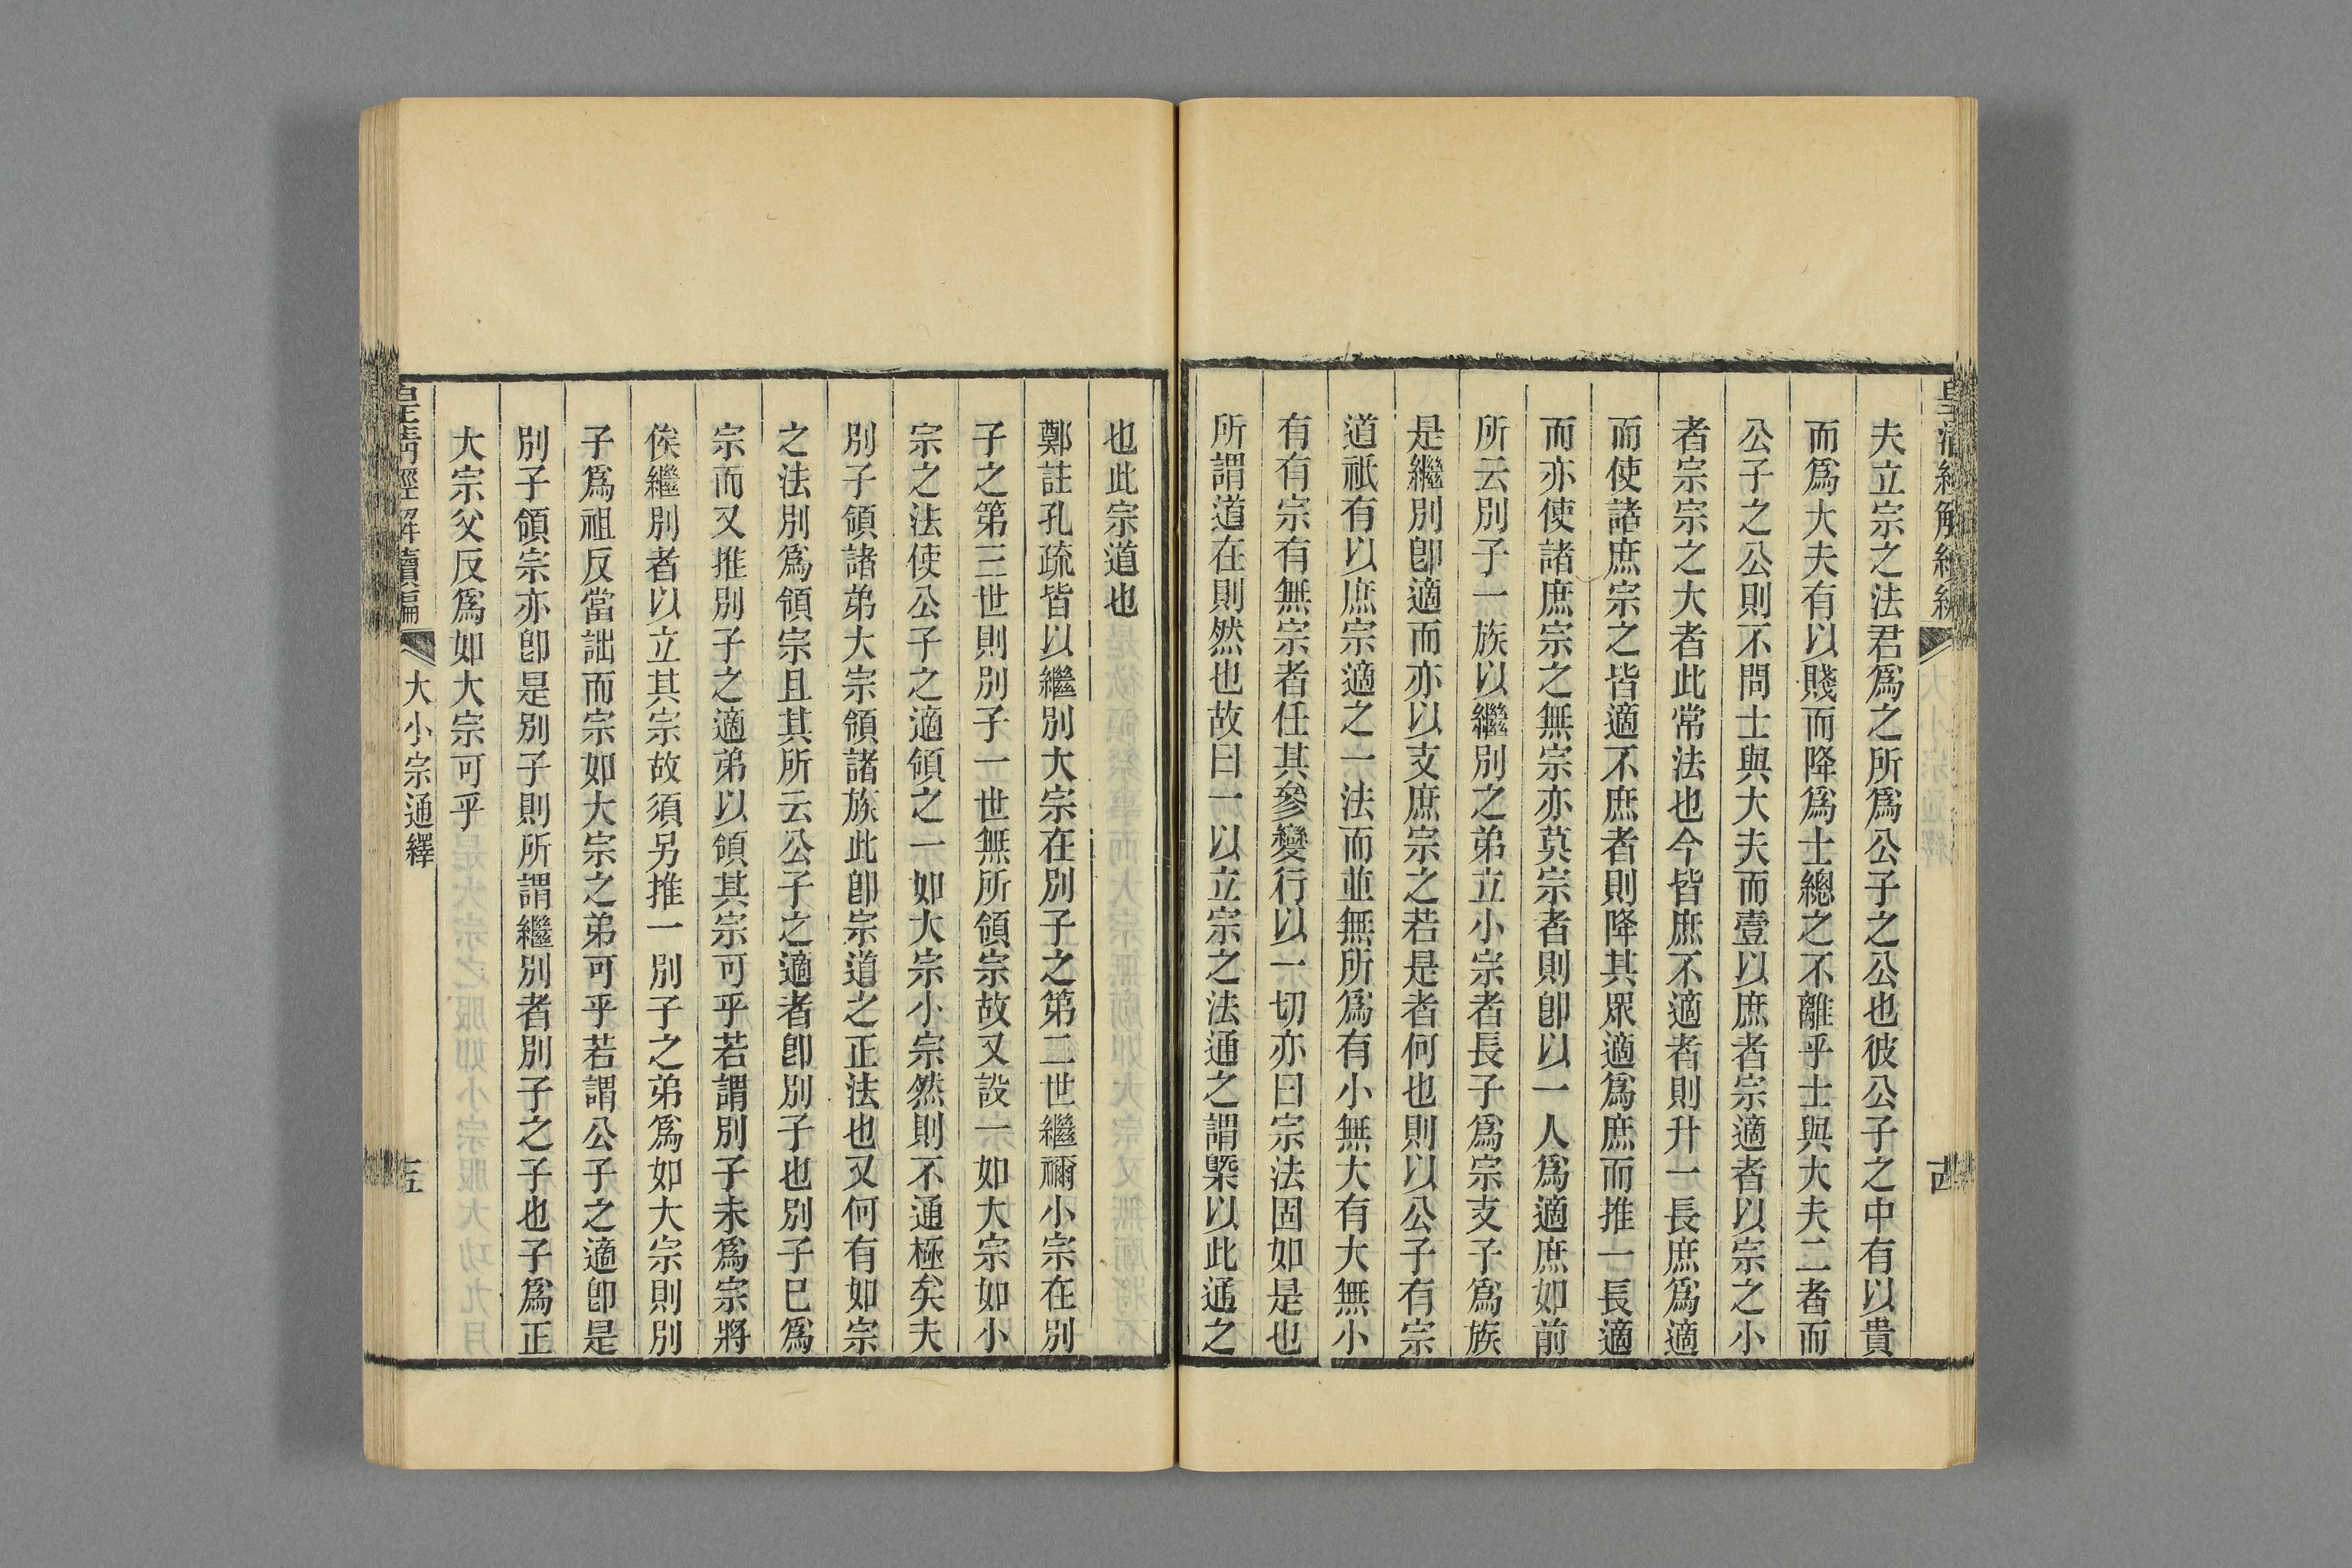 夫立宗之法君爲之所爲公子之公也彼公子之中有以貴
而爲大夫有以賤而降爲士總之不離乎士與大夫二者而
公子之公則不問士與大夫而壹以庶者宗適者以宗之小
者宗宗之大者此常法也今皆庶不適者則升一長庶爲適
而使諸庶宗之皆適不庶者則降其眾適爲庶而推一長適
而亦使諸庶宗之無宗亦莫宗者則卽以一人爲適庶如前
所云別子一族以繼別之弟立小宗者長子爲宗支子爲族
是繼別卽適而亦以支庶宗之若是者何也則以公子有宗
道祇有以庶宗適之一法而並無所爲有小無大有大無小
有有宗有無宗者任其參變行以一切亦曰宗法固如是也
所謂道在則然也故曰一以立宗之法通之謂槩以此通之
也此宗道也
鄭註孔疏皆以繼別大宗在別子之第二世繼禰小宗在別
子之第三世則別子一世無所領宗故又設一如大宗如小
宗之法使公子之適領之一如大宗小宗然則不通極矣夫
別子領諸弟大宗領諸族此卽宗道之正法也又何有如宗
之法別爲領宗且其所云公子之適者卽別子也別子已爲
宗而又推別子之適弟以領其宗可乎若謂別子未爲宗將
俟繼別者以立其宗故須另推一別子之弟爲如大宗則別
子爲祖反當詘而宗如大宗之弟可乎若謂公子之適卽是
別子領宗亦卽是別子則所謂繼別者別子之子也子爲正
大宗父反爲如大宗可乎
皇清經解續編
大小宗通繹